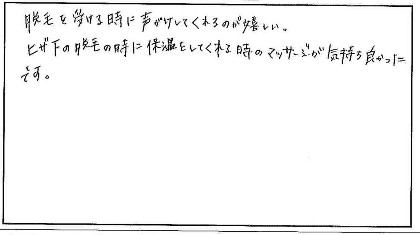 脱毛を受ける時に声がけしてくれるのが嬉しい。
ヒザ下の脱毛の時に保湿をしてくれる時のマッサージが気持ち良かった
です。